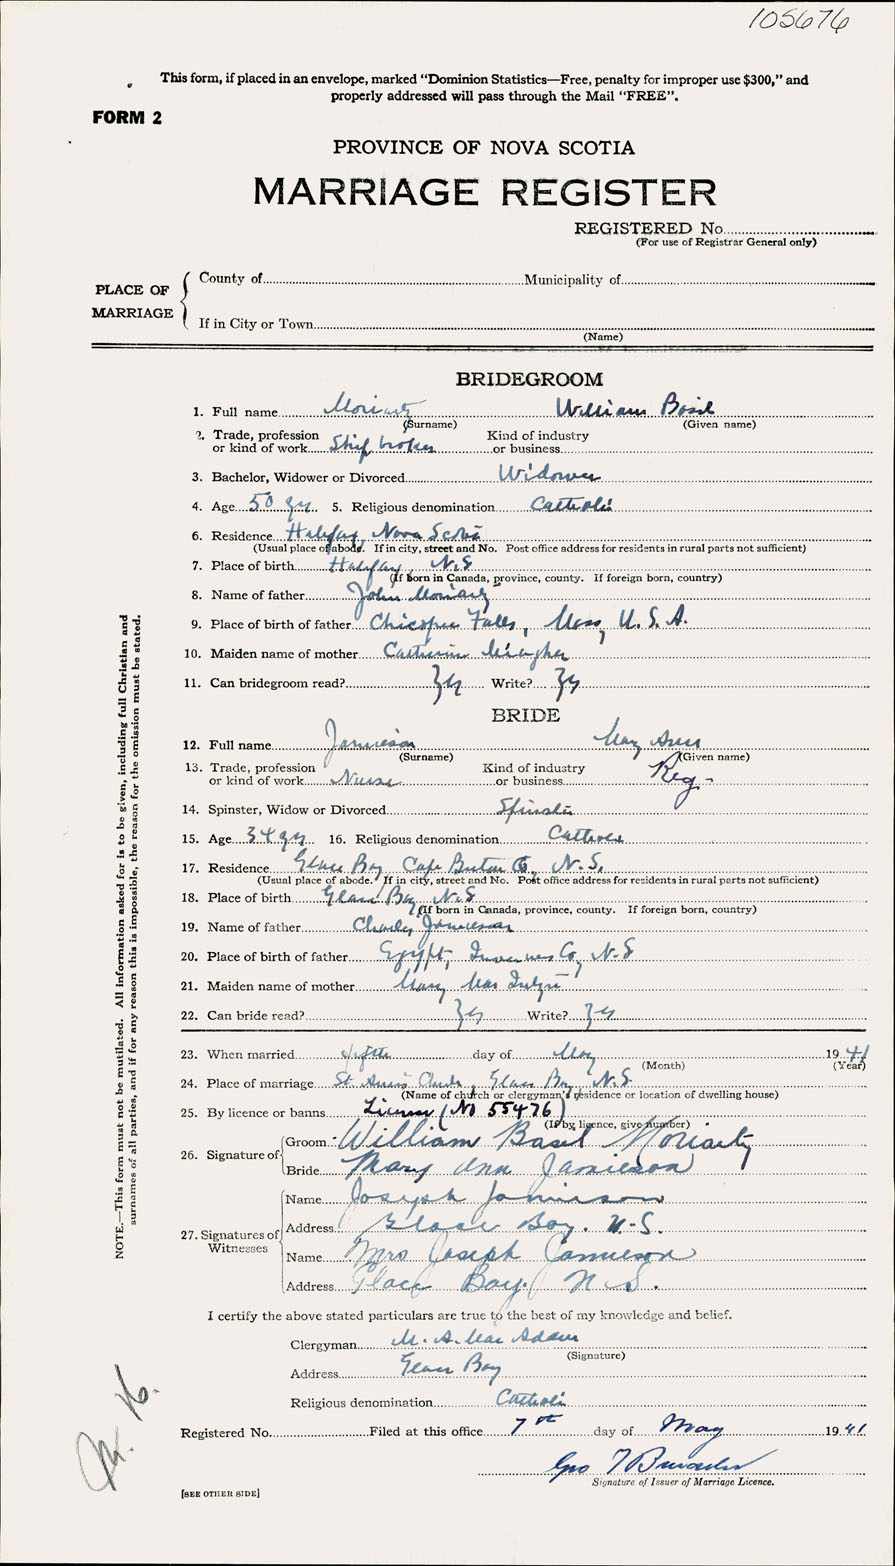 105676
This form, if placed in an envelope, marked “Dominion Statistics—Free, penalty for improper use $300,” and
properly addressed will pass through the Mail “FREE”.
FORM 2
PROVINCE OF NOVA SCOTIA
MARRIAGE REGISTER
REGISTERED No.
(For use of Registrar General only)
PLACE OF MARRIAGE
County of Municipality of
If in City or Town
(Name)
BRIDEGROOM
1. Full name Moriarty William Basil
(Surname) (Given name)
2. Trade, profession or kind of work Ship broker Kind of industry or business
3. Bachelor, Widower or Divorced Widower
4. Age 50 yr. 5. Religious denomination Catholic
6. Residence Halifax, Nova Scotia
(Usual place of abode. If in city, street and No. Post office address for residents in rural parts not sufficient)
7. Place of birth Halifax, N.S
(If born in Canada, province, county. If foreign born, country)
8. Name of father John Moriarty
9. Place of birth of father Chicopee Falls, Mass, U.S.A.
10. Maiden name of mother Catherine Meagher
11. Can bridegroom read? Yes Write? Yes
BRIDE
12. Full name Jamieson Mary Ann
(Surname) (Given name)
13. Trade, profession or kind of work Nurse Kind of industry or business Reg-
14. Spinster, Widow or Divorced Spinster
15. Age 34 yr 16. Religious denomination Catholic
17. Residence Glace Bay Cape Breton Co, N.S.
(Usual place of abode. If in city, street and No. Post office address for residents in rural parts not sufficient)
18. Place of birth Glace Bay, N.S
(If born in Canada, province, county. If foreign born, country)
19. Name of father Charles Jamieson
20. Place of birth of father Egypt, Inverness Co, N.S
21. Maiden name of mother Mary Mac Intyre
22. Can bride read? Yes Write? Yes
23. When married fifth day of May 1941
(Month) (Year)
24. Place of marriage St. Ann's Church, Glace Bay, N.S.
(Name of church or clergyman's residence or location of dwelling house)
25. By licence or banns License (No 55476)
(If by licence, give number)
26. Signature of Groom William Basil Moriarty
Bride Mary Ann Jamieson
27. Signatures of Witnesses Name Joseph Jamieson
Address Glace Bay. N.S.
Name Mrs Joseph Jamieson
Address Glace Bay. N.S.
I certify the above stated particulars are true to the best of my knowledge and belief.
Clergyman M. A. Mac Adam
(Signature)
Address Glace Bay
Religious denomination Catholic
Registered No. Filed at this office 7th day of May 1941
Geo T
Signature of Issuer of Marriage Licence.
[SEE OTHER SIDE]
NOTE.—This form must not be mutilated. All information asked for is to be given, including full Christian and
surnames of all parties, and if for any reason this is impossible, the reason for the omission must be stated.